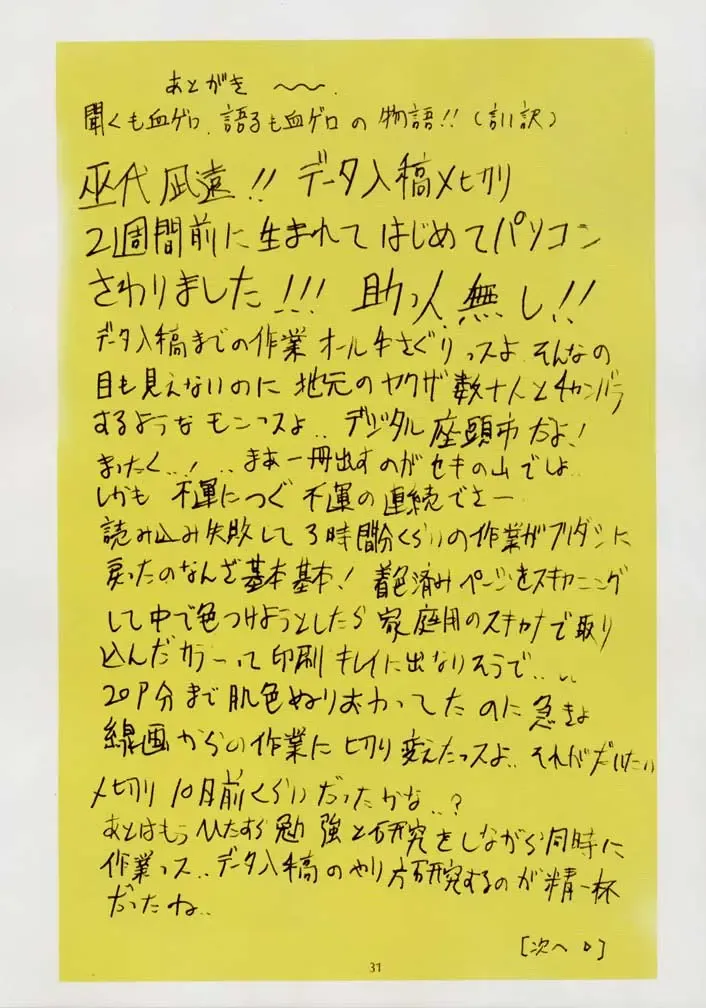 あとがき 〜〜.
聞くも血ゲロ、語るも血ゲロの物語!!(言い訳)
巫代凪遠!! データ入稿〆切り
2週間前に生まれてはじめてパソコン
さわりました!!! 助っ人無し!!
データ入稿までの作業 オール手さぐりっスよ そんなの
目も見えないのに 地元のヤクザ数十人とチャンバラ
するようなモンっスよ.. デジタル座頭市だよ!
まったく..! ..まあ一冊出すのがセキの山でしょ..
しかも 不運につぐ不運の連続でさー
読み込み失敗して3時間分くらいの作業がフリダシに
戻ったのなんざ基本基本! 着色済みページをスキャニング
して中で色つけようとしたら家庭用のスキャナで取り
込んだカラーって印刷キレイに出なりそうで....
20P分まで肌色ぬりおわってたのに急きょ
線画からの作業に切り変えたっスよ.. それがだいたい
〆切り10日前くらいだったかな..?
あとはもうひたすら勉強と研究をしながら同時に
作業っス.. データ入稿のやり方研究するのが精一杯
だったね..
[次へ▷]
31